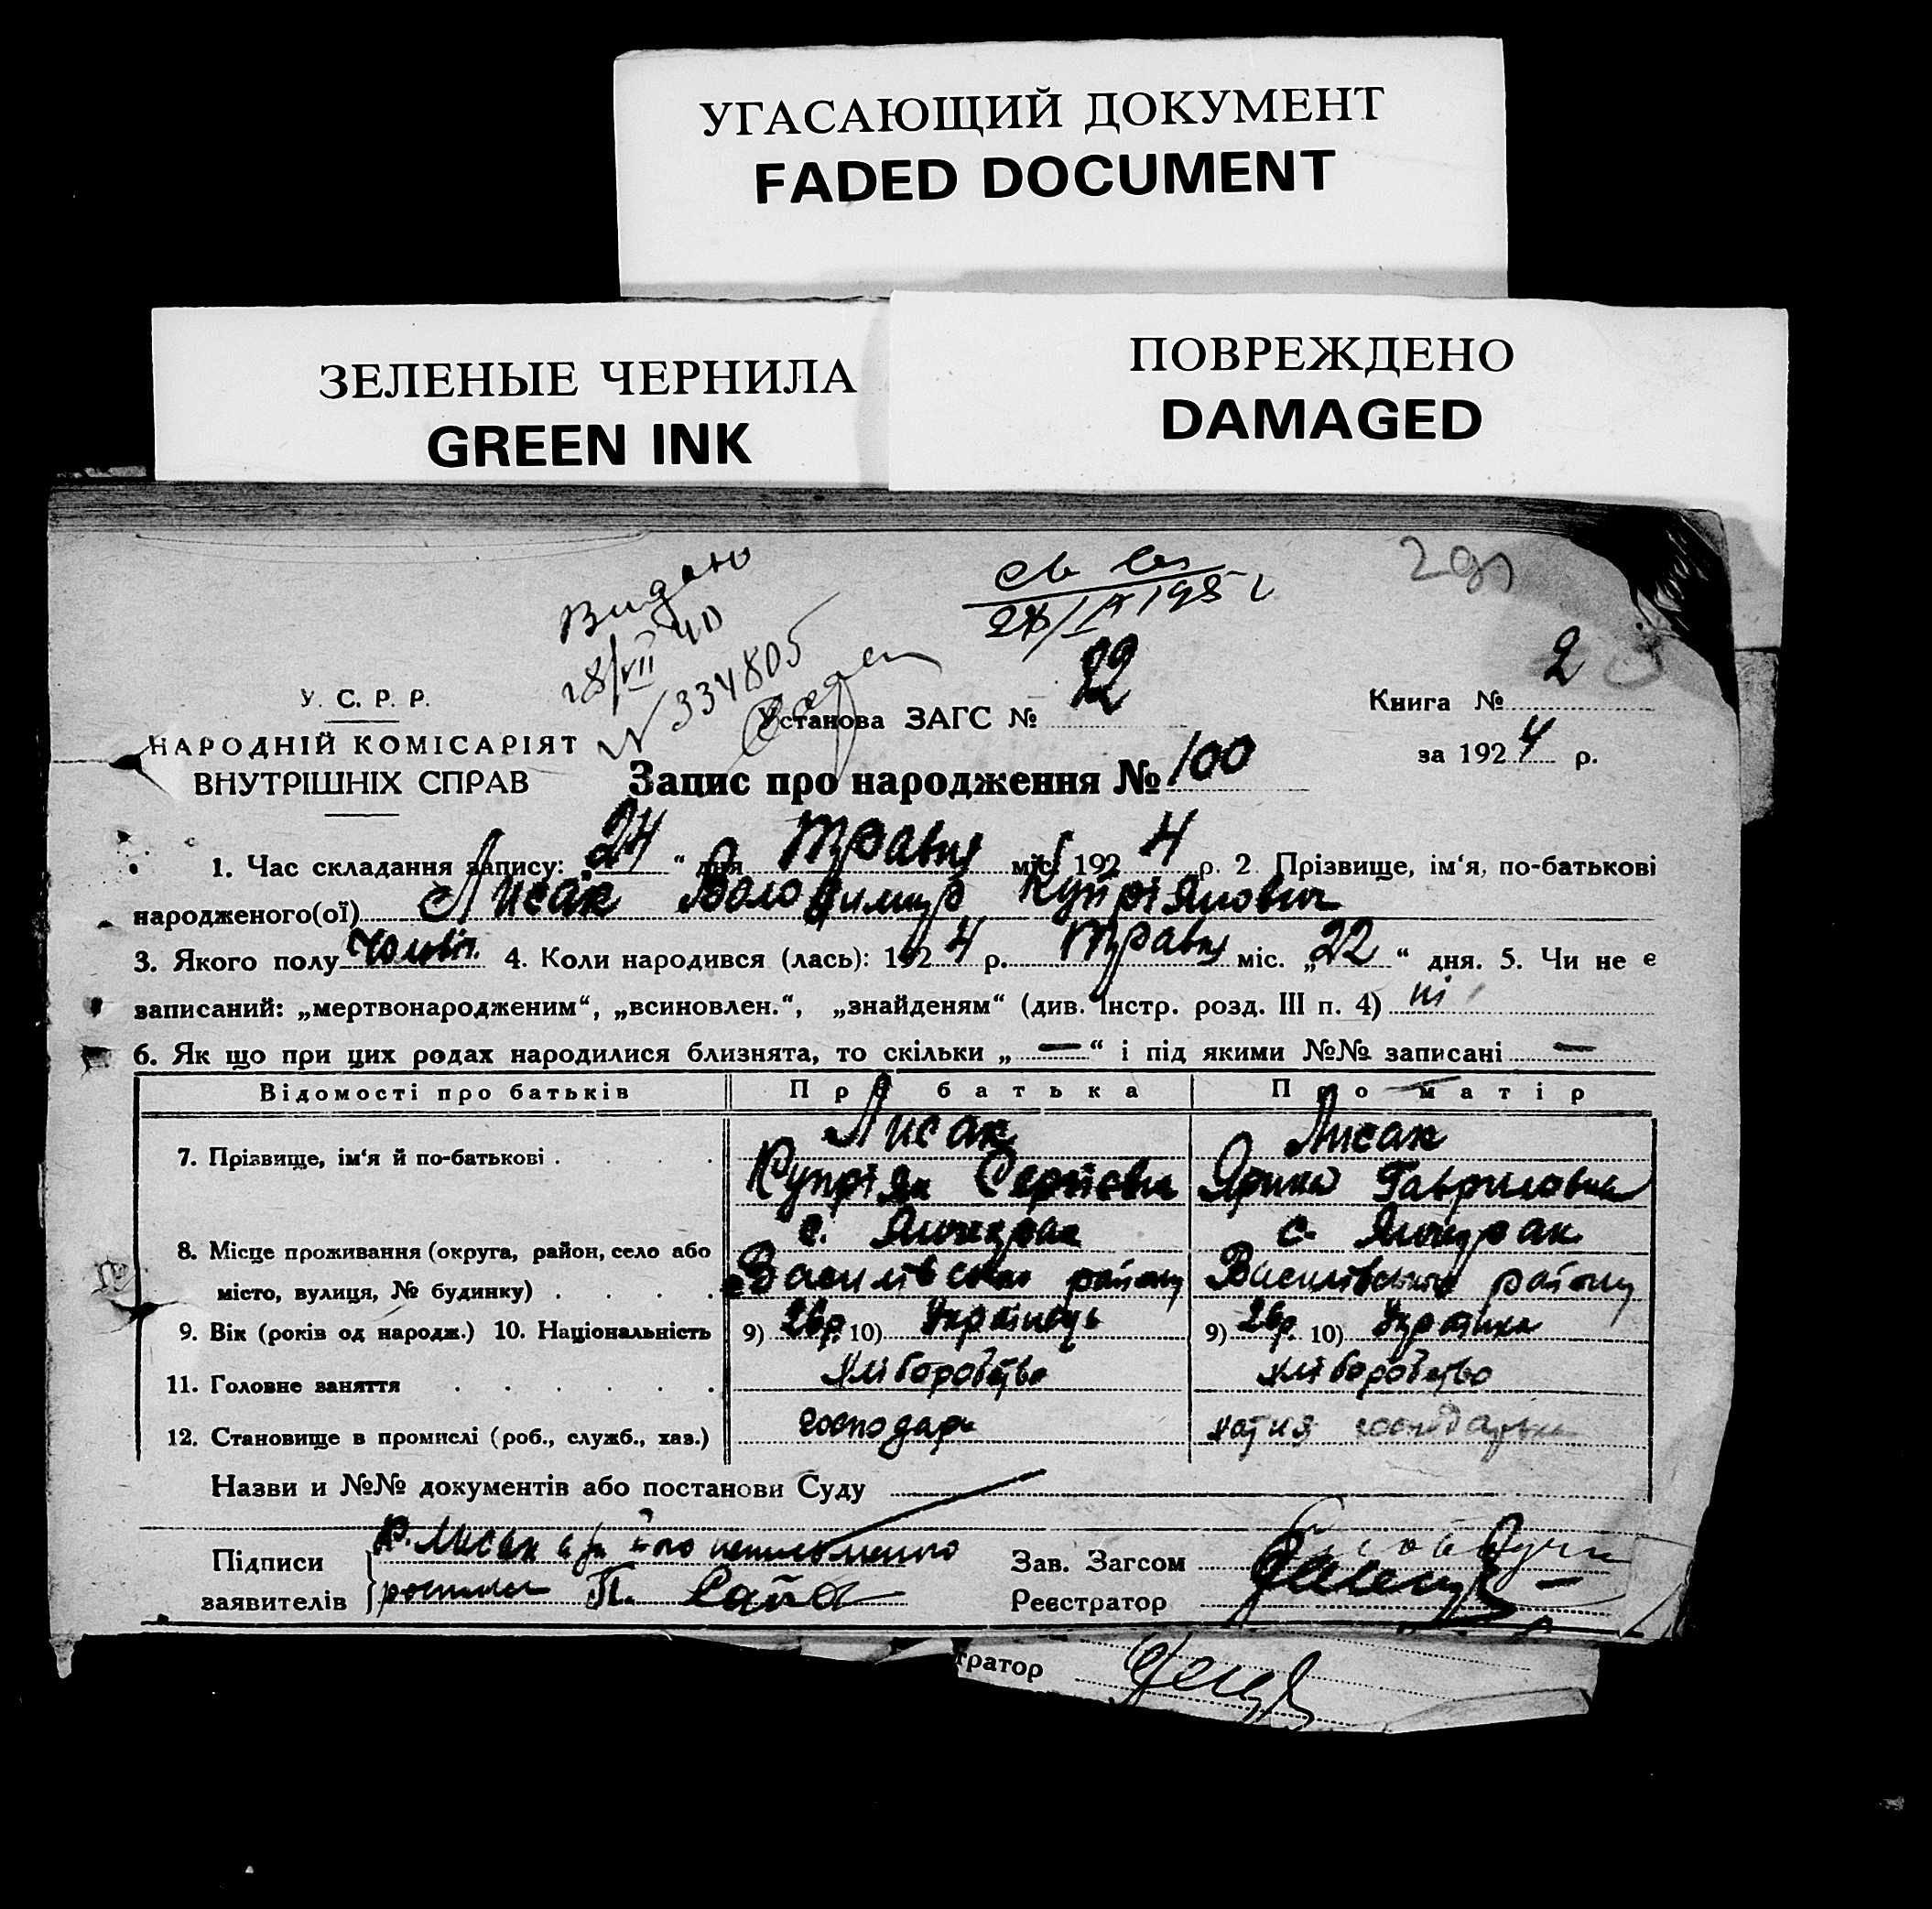 УГАСАЮЩИЙ ДОКУМЕНТ
FADED DOCUMENT
ЗЕЛЕНЫЕ ЧЕРНИЛА
GREEN INK
ПОВРЕЖДЕНО
DAMAGED
Видано
28/VII 40
N 334805
У. С. Р. Р.
НАРОДНІЙ КОМІСАРІЯТ
ВНУТРІШНІХ СПРАВ
Установа ЗАГС № 22
Книга № 2
за 1924 р.
Запис про народження № 100
1. Час складання запису: 24 “ дня Травня міс. 1924 р. 2 Прізвище, ім‘я, по-батькові
народженого(ої) Лисак Володимир Купріянович
3. Якого полу чолов. 4. Коли народився (лась): 1924 р. Травня міс. „22“ дня. 5. Чи не є
записаний: „мертвонародженим“, „всиновлен.“, „знайденям“ (див. Інстр. розд. III п. 4) ні
6. Як що при цих родах народилися близнята, то скільки „ — “ і під якими №№ записані —
Відомості про батьків Про батька Про матір
7. Прізвище, ім‘я й по-батькові . Лисак Лисак
Купріян Сергієвич Ярина Гавриловна
8. Місце проживання (округа, район, село або с. Янчекрак с. Янчекрак
місто, вулиця, № будинку) . Василівського району Василівського району
9. Вік (років од народж.) 10. Національність 9) 26 р. 10) Українець 9) 26 р. 10) Українка
11. Головне заняття хліборобство хліборобство
12. Становище в промислі (роб., служб., хаз.) господарь хатня господарька
Назви и №№ документів або постанови Суду
Підписи К. Лисак а за його неписьменного
заявителів росписа П.
Зав. Загсом
Реєстратор
тратор